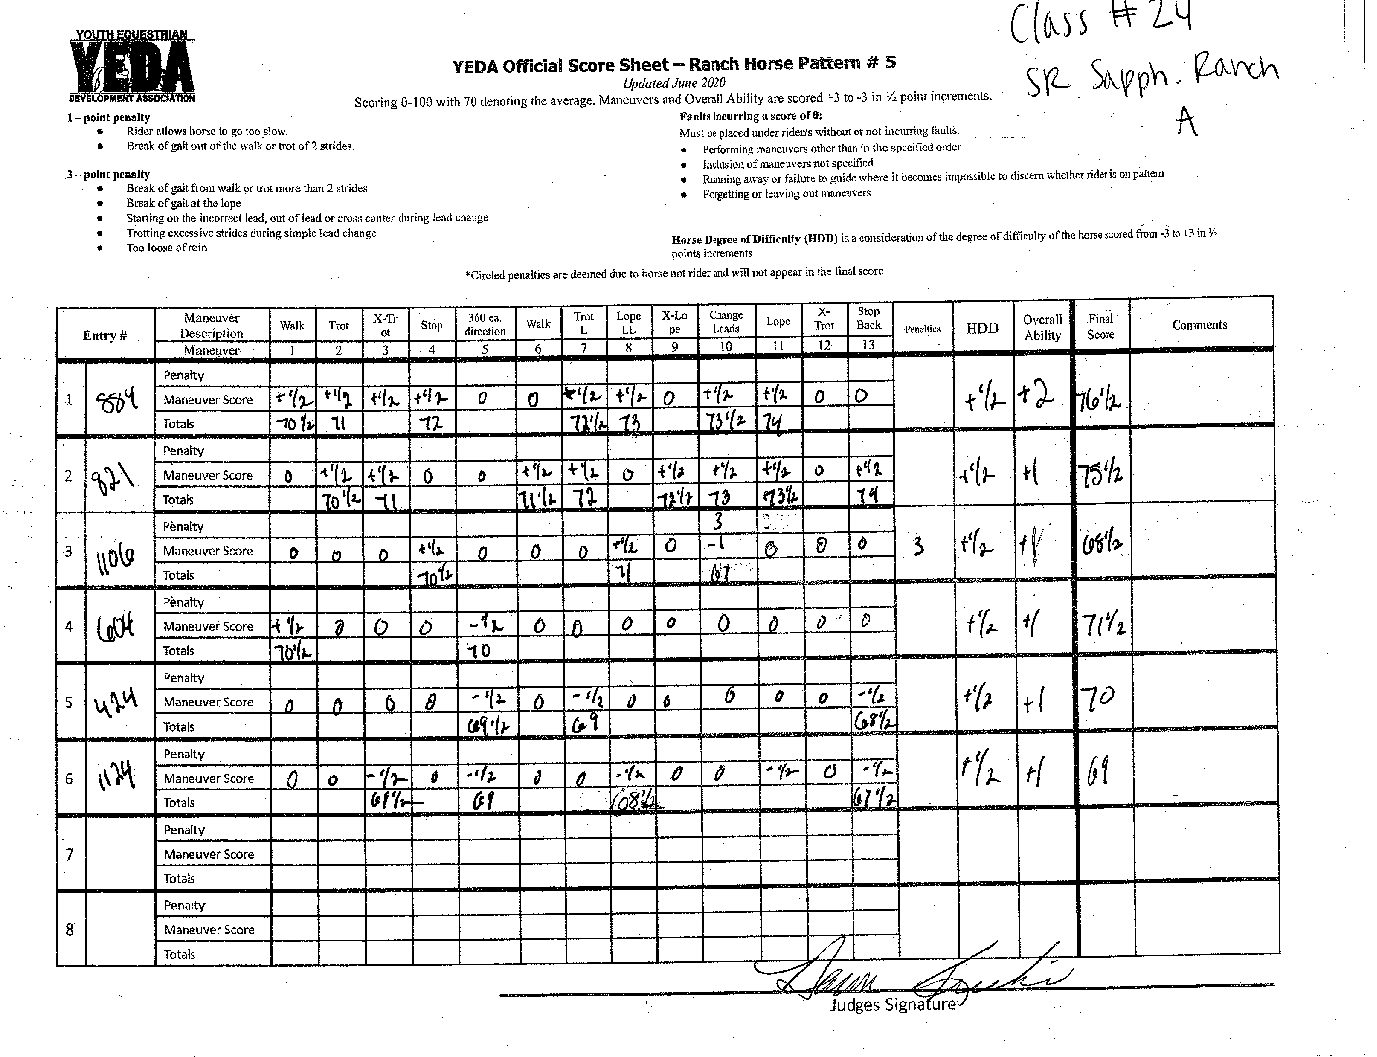 Class # 24
SR Sapph. Ranch
A
YOUTH EQUESTRIAN
YEDA
DEVELOPMENT ASSOCIATION
YEDA Official Score Sheet – Ranch Horse Pattern # 5
Updated June 2020
Scoring 0-100 with 70 denoting the average. Maneuvers and Overall Ability are scored +3 to -3 in ½ point increments.
1 – point penalty
• Rider allows horse to go too slow.
• Break of gait out of the walk or trot of 2 strides.
3 - point penalty
• Break of gait from walk or trot more than 2 strides
• Break of gait at the lope
• Starting on the incorrect lead, out of lead or cross canter during lead change
• Trotting excessive strides during simple lead change
• Too loose of rein
Faults incurring a score of 0:
Must be placed under riders without or not incurring faults.
• Performing maneuvers other than in the specified order
• Inclusion of maneuvers not specified
• Running away or failure to guide where it becomes impossible to discern whether rider is on pattern
• Forgetting or leaving out maneuvers
Horse Degree of Difficulty (HDD) is a consideration of the degree of difficulty of the horse scored from -3 to +3 in ½
points increments
*Circled penalties are deemed due to horse not rider and will not appear in the final score
Entry # Maneuver Description Walk Trot X-Trot Stop 360 ea. direction Walk Trot L Lope LL X-Lope Change Leads Lope X-Trot Stop Back Penalties HDD Overall Ability Final Score Comments
Maneuver 1 2 3 4 5 6 7 8 9 10 11 12 13
Penalty
1 884 Maneuver Score +1/2 +1/2 +1/2 +1/2 0 0 +1/2 +1/2 0 +1/2 +1/2 0 0 +1/2 +2 76 1/2
Totals 70 1/2 71 72 72 1/2 73 73 1/2 74
Penalty
2 821 Maneuver Score 0 +1/2 +1/2 0 0 +1/2 +1/2 0 +1/2 +1/2 +1/2 0 +1/2 +1/2 +1 75 1/2
Totals 70 1/2 71 71 1/2 72 72 1/2 73 73 1/2 74
Penalty 3
3 1106 Maneuver Score 0 0 0 +1/2 0 0 0 +1/2 0 -1 0 0 0 3 +1/2 +1 68 1/2
Totals 70 1/2 71 67
Penalty
4 604 Maneuver Score +1/2 0 0 0 -1/2 0 0 0 0 0 0 0 0 +1/2 +1 71 1/2
Totals 70 1/2 70
Penalty
5 424 Maneuver Score 0 0 0 0 -1/2 0 -1/2 0 0 0 0 0 -1/2 +1/2 +1 70
Totals 69 1/2 69 68 1/2
Penalty
6 1124 Maneuver Score 0 0 -1/2 0 -1/2 0 0 -1/2 0 0 -1/2 0 -1/2 +1/2 +1 69
Totals 69 1/2 69 68 1/2 67 1/2
Penalty
7 Maneuver Score
Totals
Penalty
8 Maneuver Score
Totals
Judges Signature